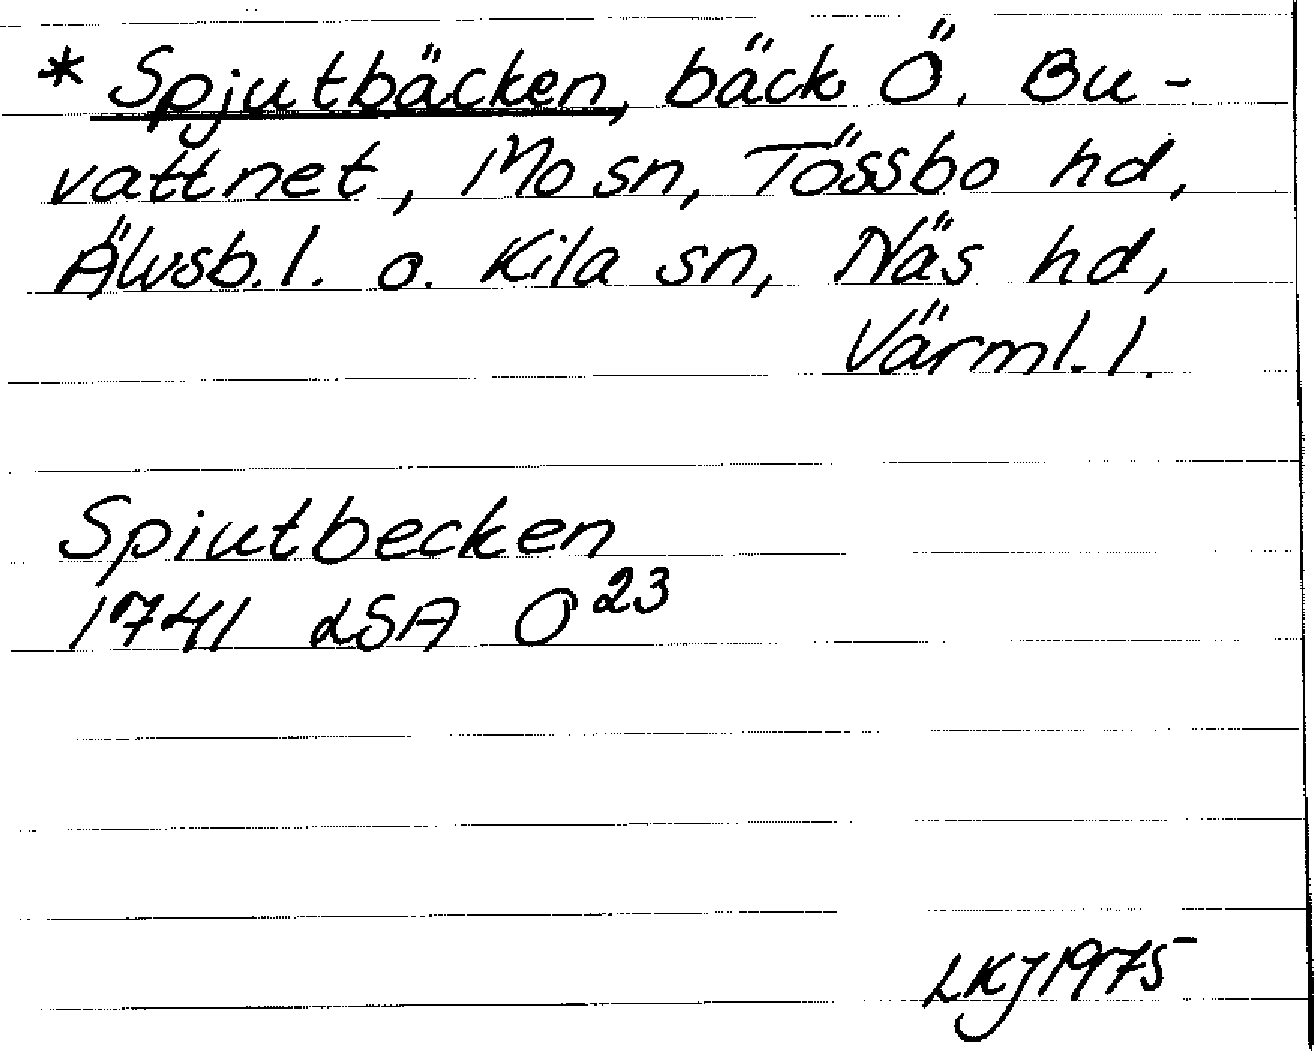 * Spjutbäcken, bäck Ö. Bu-
vattnet, Mo sn, Tössbo hd,
Älvsb. l. o. Kila sn, Näs hd,
Värml. l.
Spiutbecken
1741 LSA O 23
LKJ 1975